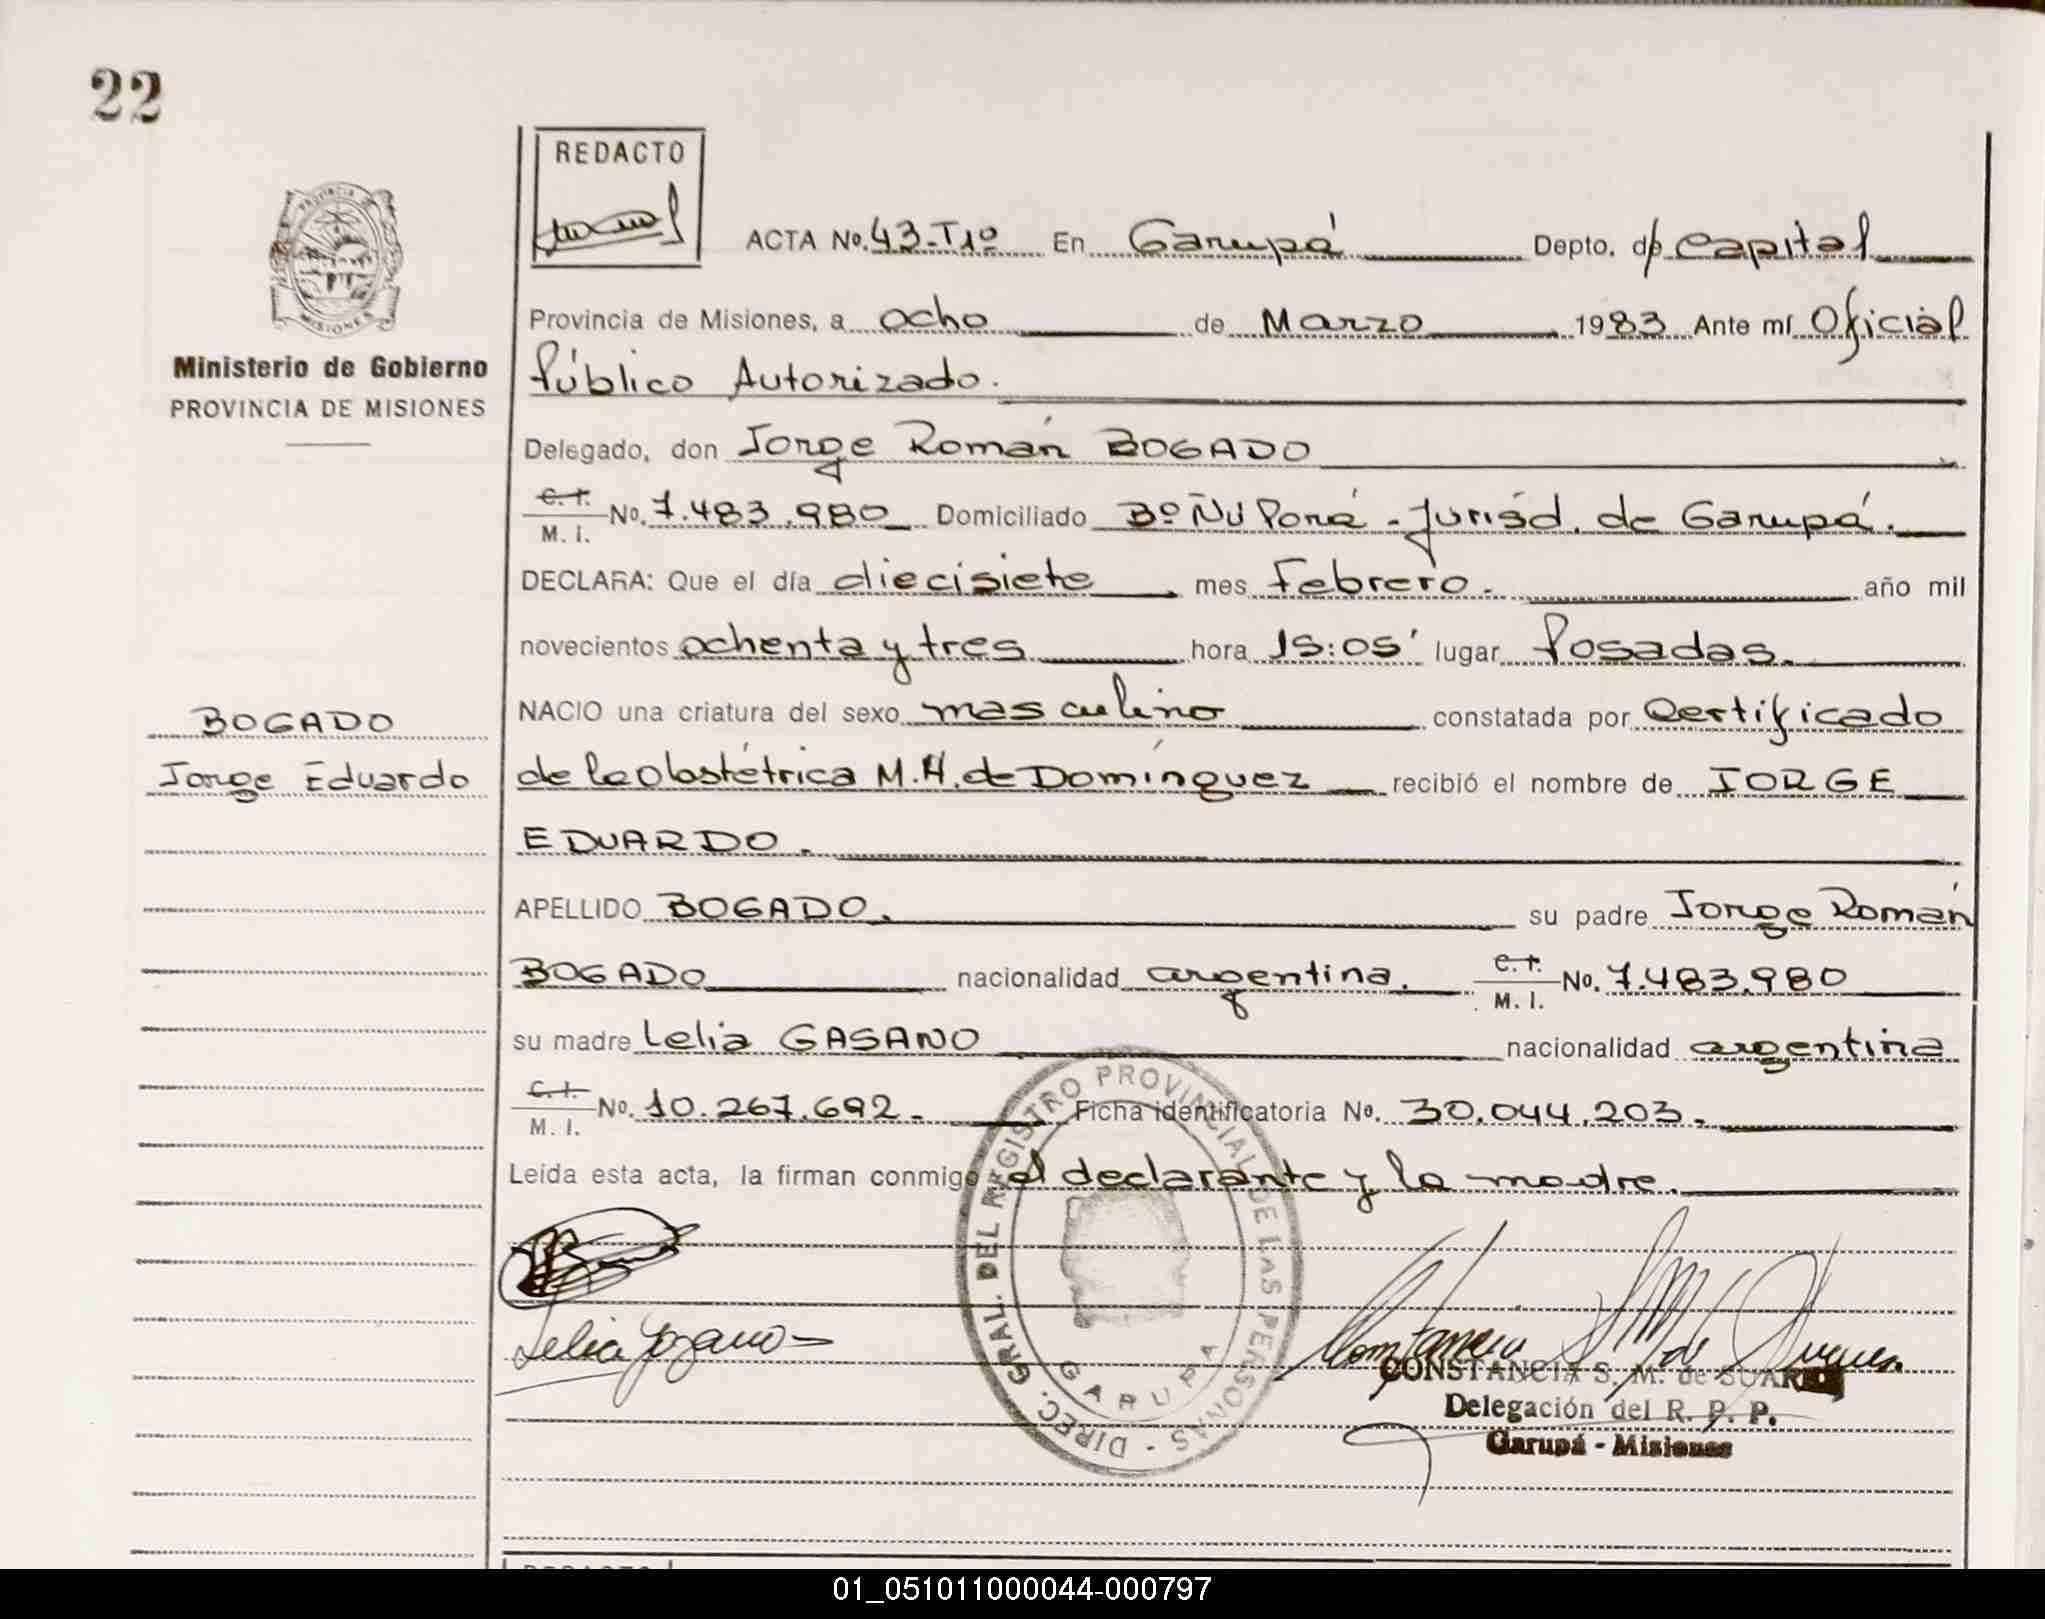 22
REDACTO
ACTA No. 43-T1º En Garupá Depto. de Capital
Provincia de Misiones, a ocho de Marzo 1983 Ante mí Oficial
Público Autorizado.
Ministerio de Gobierno
PROVINCIA DE MISIONES
Delegado, don Jorge Román BOGADO
C.I. M. I. No. 7.483.980 Domiciliado Bº Ñu Porá - Jurisd. de Garupá.
DECLARA: Que el día diecisiete mes Febrero. año mil
novecientos ochenta y tres hora 15:05' lugar Posadas.
BOGADO
Jorge Eduardo
NACIO una criatura del sexo masculino constatada por Certificado
de la Obstétrica M.H. de Domínguez recibió el nombre de JORGE
EDUARDO.
APELLIDO BOGADO. su padre Jorge Román
BOGADO nacionalidad argentina. C.I. M. I. No. 7.483.980
su madre Lelia GASANO nacionalidad argentina
C.I. M. I. No. 10.267.692.- Ficha identificatoria No. 30.044.203.
Leída esta acta, la firman conmigo el declarante y la madre.
DIREC. GRAL. DEL REGISTRO PROVINCIAL DE LAS PERSONAS -
GARUPA
CONSTANCIA S. M. de SUAREZ
Delegación del R. P. P.
Garupá - Misiones
01_051011000044-000797